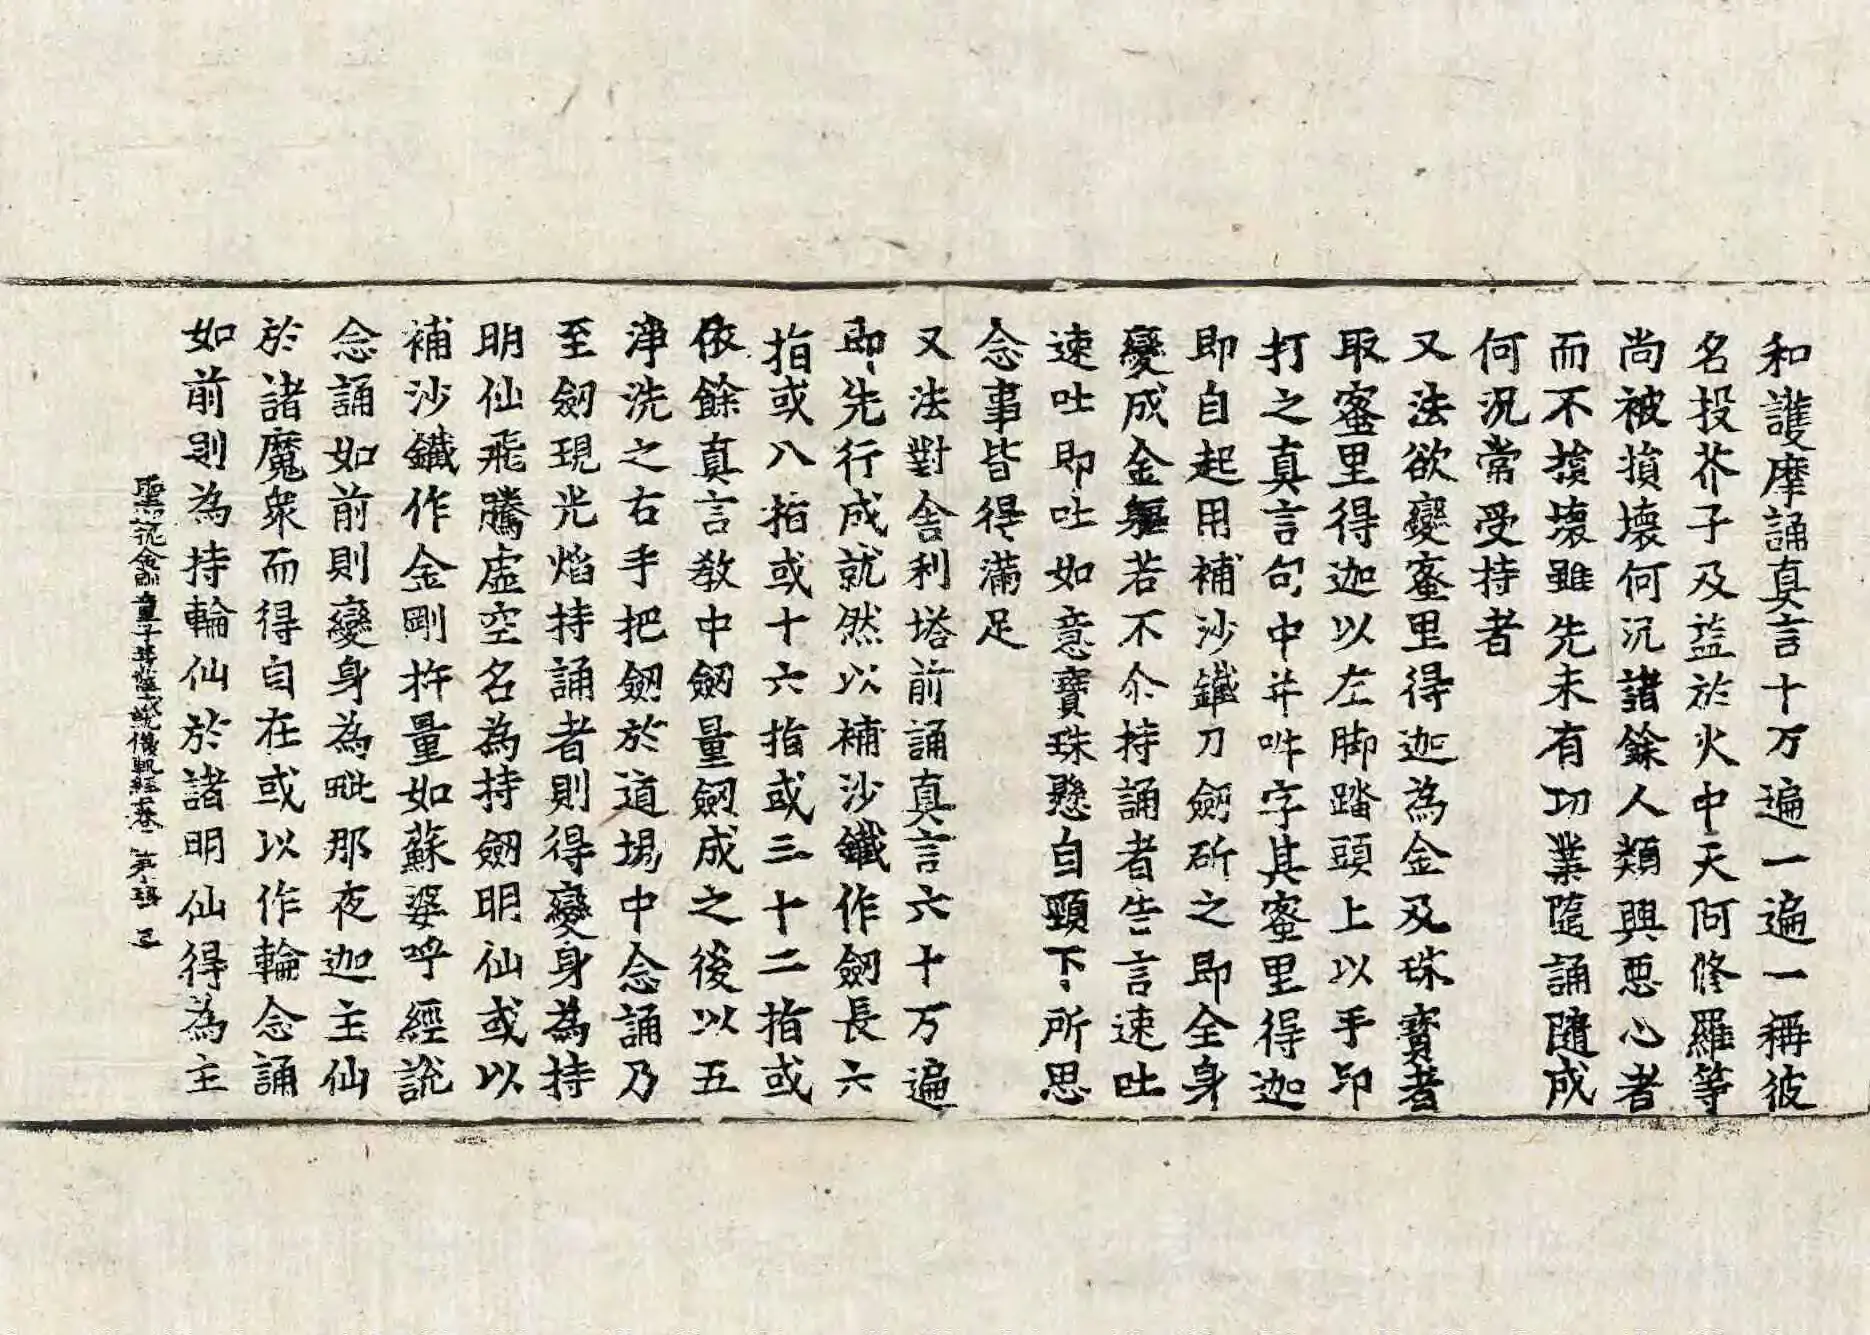 和護摩誦真言十万遍一遍一稱彼
名投芥子及盐於火中天阿修羅等
尚被損壞何況諸餘人類興惡心者
而不損壞雖先未有功業隨誦隨成
何況常受持者
又法欲變蜜里得迦為金及珠寶者
取蜜里得迦以左脚踏頭上以手印
打之真言句中并吽字其蜜里得迦
即自起用補沙鐵刀劒斫之即全身
變成金軀若不尒持誦者告言速吐
速吐即吐如意寶珠懸自頸下所思
念事皆得滿足
又法對舍利塔前誦真言六十万遍
即先行成就然以補沙鐵作劒長六
指或八指或十六指或三十二指或
依餘真言教中劒量劒成之後以五
淨洗之右手把劒於道場中念誦乃
至劒現光焰持誦者則得變身為持
明仙飛騰虛空名為持劒明仙或以
補沙鐵作金剛杵量如蘇婆呼經說
念誦如前則變身為毗那夜迦主仙
於諸魔衆而得自在或以作輪念誦
如前則為持輪仙於諸明仙得為主
金剛童子菩薩成就儀軌經卷 第